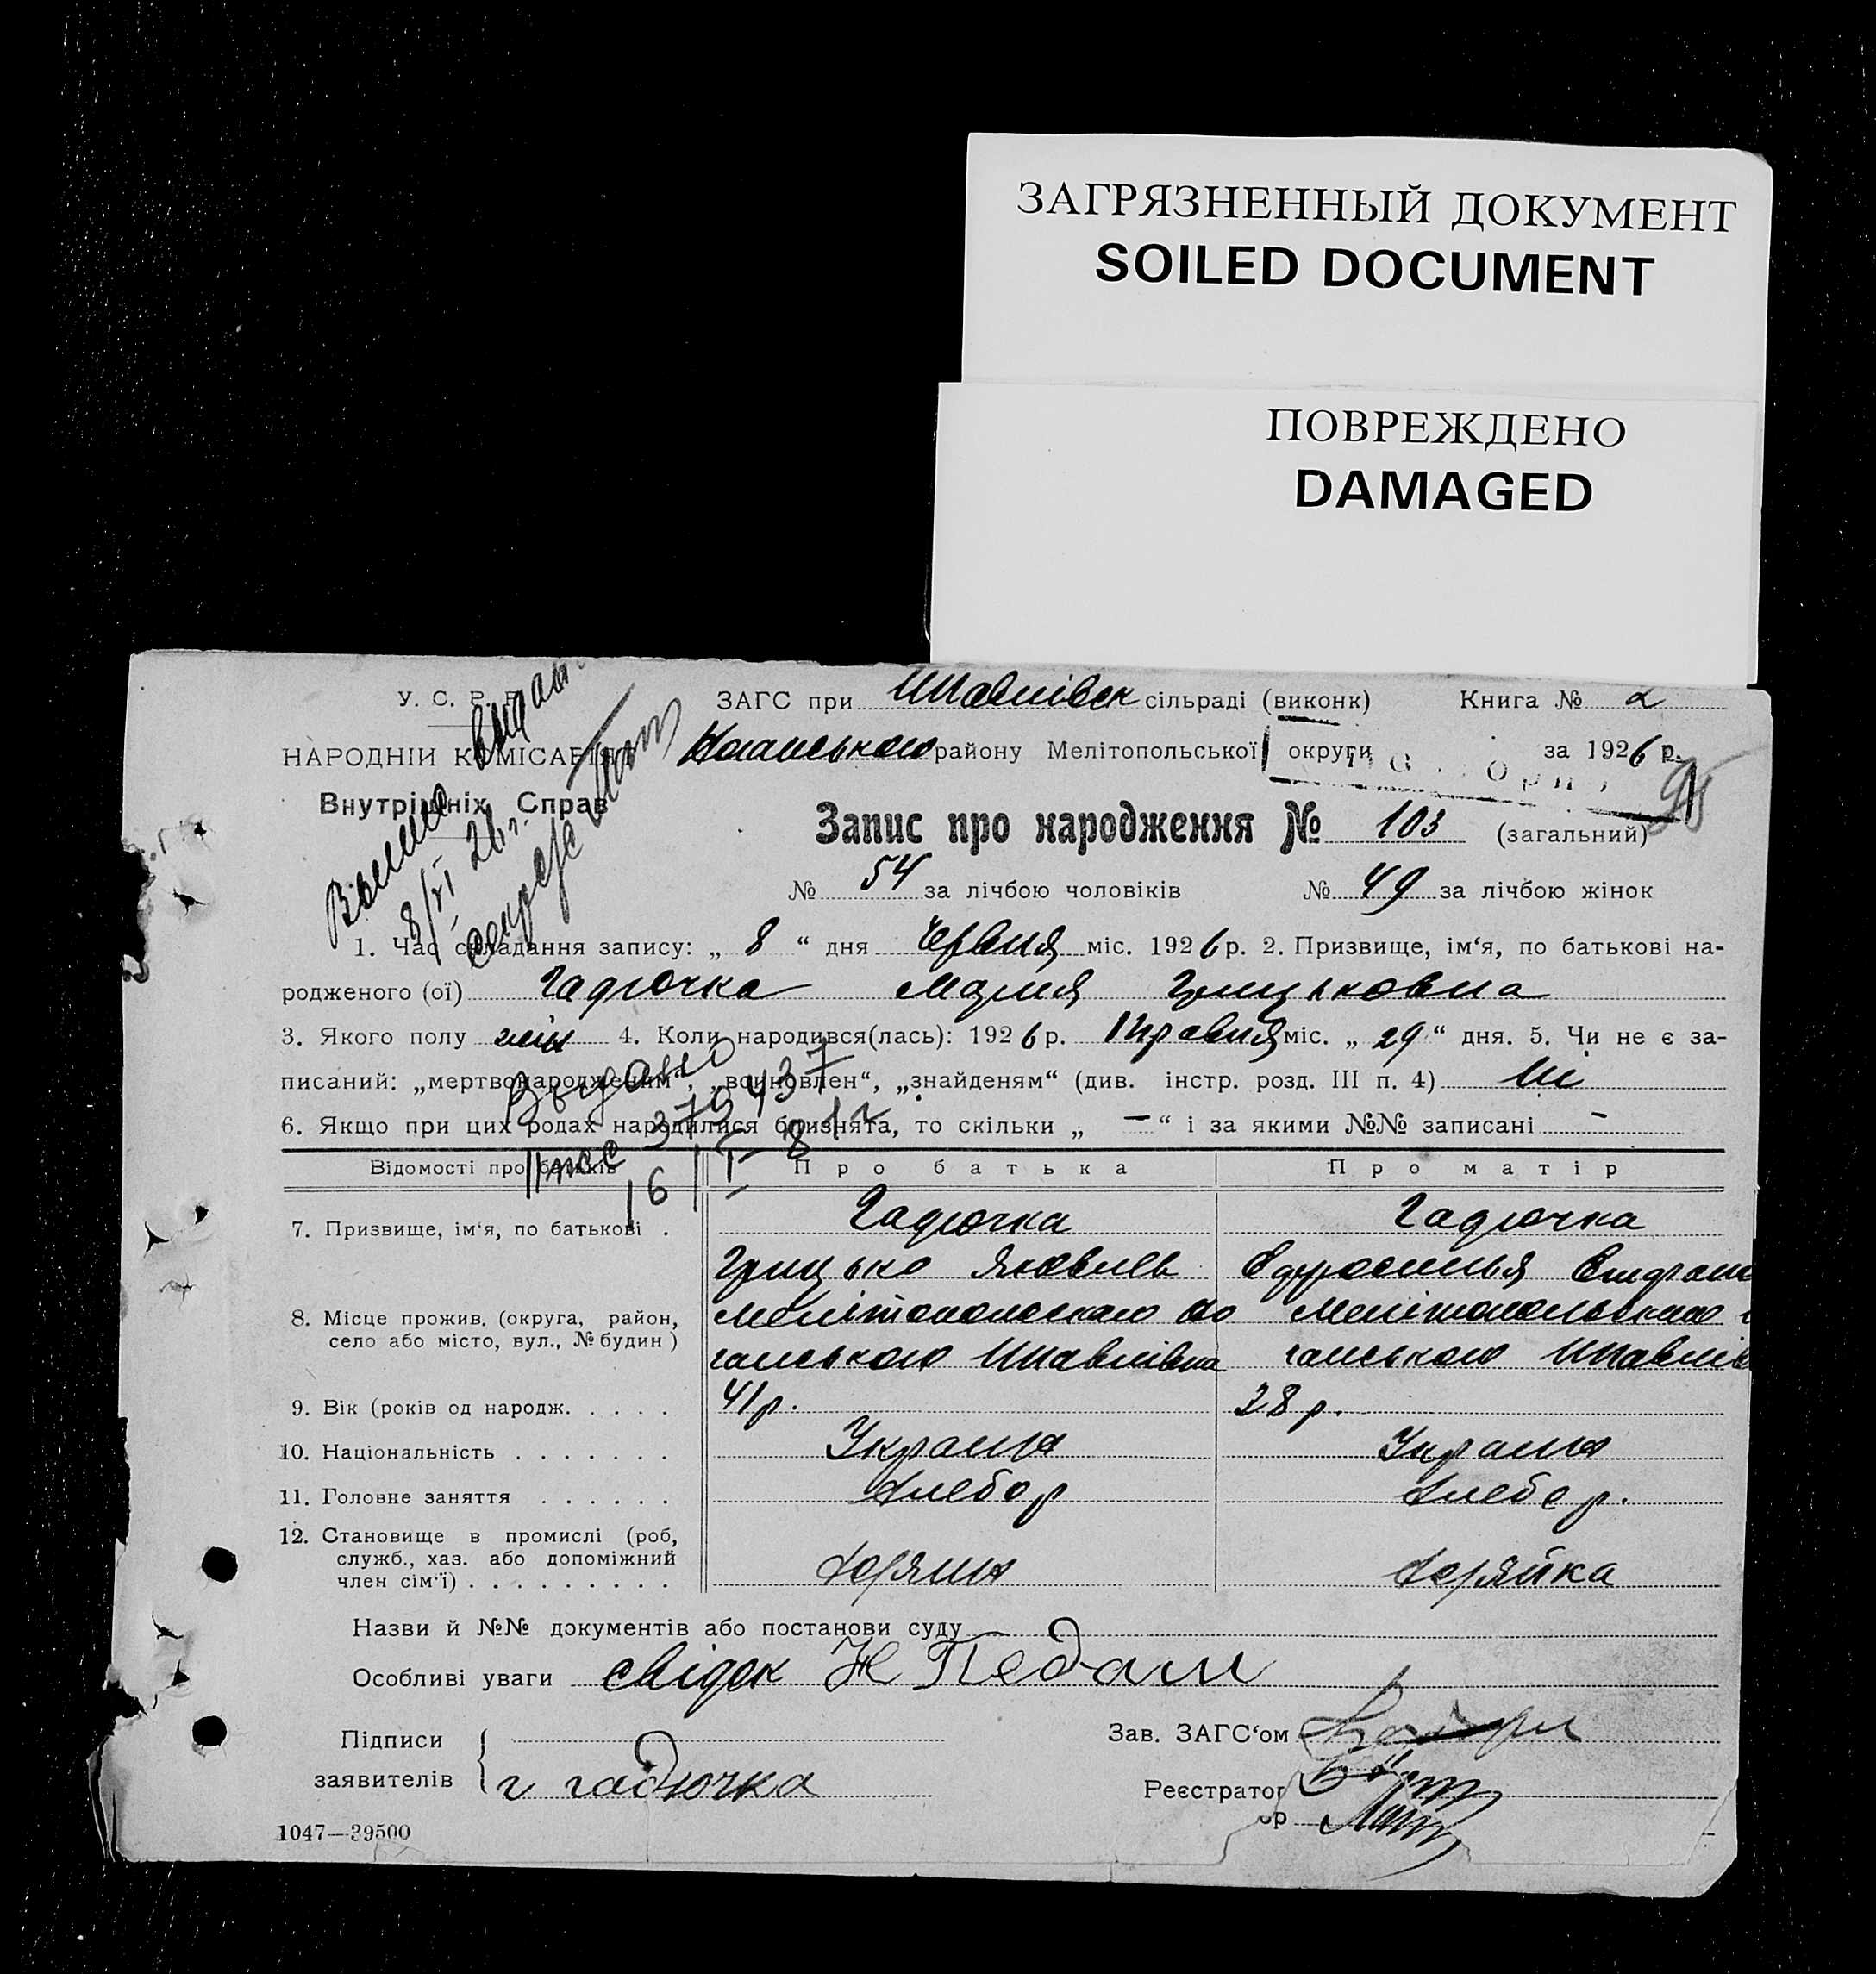 ЗАГРЯЗНЕННЫЙ ДОКУМЕНТ
SOILED DOCUMENT
ПОВРЕЖДЕНО
DAMAGED
У. С. Р. Р. ЗАГС при сільраді (виконк) Книга № 2
НАРОДНІЙ КОМІСАРІЯТ району Мелітопольської округи за 1926 р.
Внутрішніх Справ
Запис про народження № 103 (загальний)
№ 54 за лічбою чоловіків № 49 за лічбою жінок
1. Час складання запису: „ 8 “ дня Червня міс. 1926 р. 2. Призвище, ім‘я, по батькові на-
родженого (ої) Гадючка Мария Грицьковна
3. Якого полу жін 4. Коли народився(лась): 1926 р. Травня міс. „ 29 “ дня. 5. Чи не є за-
писаний: „мертвонародженим“, „воиновлен“, „знайденям“ (див. інстр. розд. III п. 4) Ні
6. Якщо при цих родах народилися близнята, то скільки „ — “ і за якими №№ записані –
Видано
379437
Відомості про батьків Про батька Про матір
7. Призвище, ім‘я, по батькові . Гадючка Гадючка
Грицько Яковлев
8. Місце прожив. (округа, район,
село або місто, вул., № будин )
9. Вік (років од народж. . . . . 41 р. 28 р.
10. Національність . . . . . . . Украин Украин
11. Головне заняття . . . . . . Хлебор Хлебор.
12. Становище в промислі (роб,
служб., хаз. або допоміжний
член сім‘ї) . . . . . . . . .
Назви й №№ документів або постанови суду
Особливі уваги свідок Н Педан
Підписи
заявителів г гадючка
Зав. ЗАГС‘ом
Реєстратор
ор
1047—39500